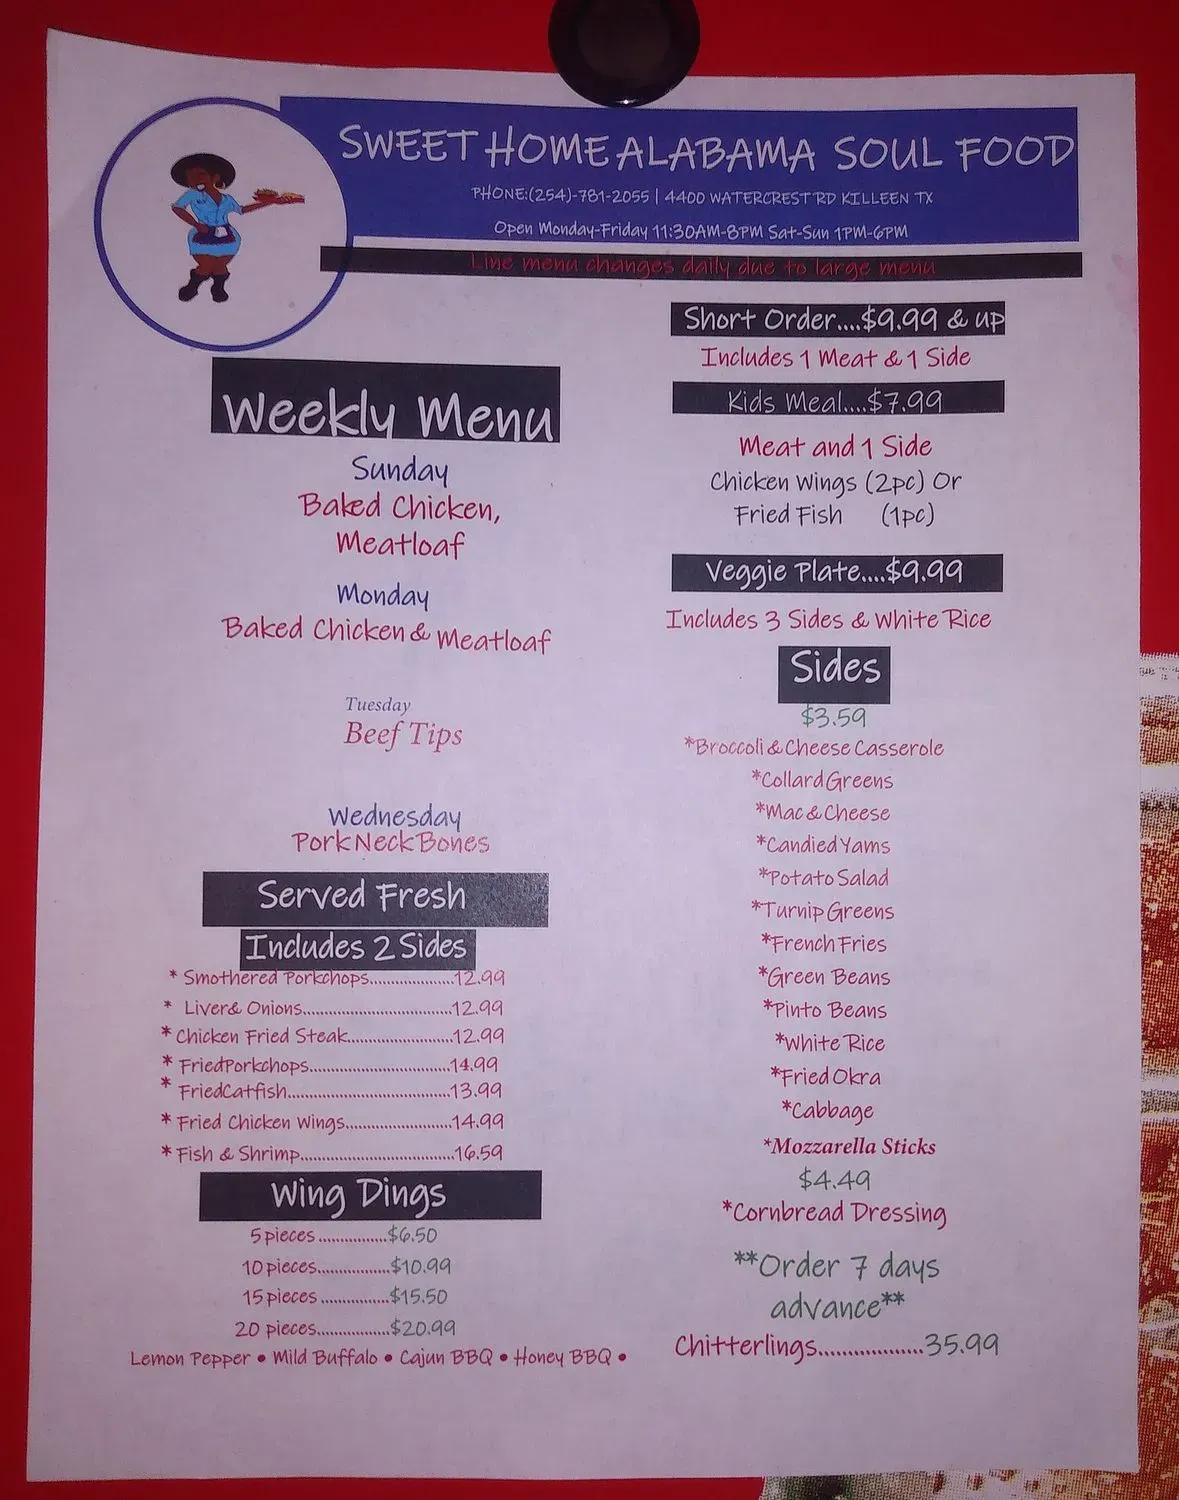 SWEET HOME ALABAMA SOUL FOOD
PHONE:(254)-781-2055 | 4400 WATERCREST RD KILLEEN TX
Open Monday-Friday 11:30AM-8PM Sat-Sun 1PM-6PM
Line menu changes daily due to large menu
Weekly Menu
Sunday
Baked Chicken,
Meatloaf
Monday
Baked Chicken & Meatloaf
Tuesday
Beef Tips
Wednesday
Pork Neck Bones
Served Fresh
Includes 2 Sides
* Smothered Porkchops....................12.99
* Liver& Onions...................................12.99
* Chicken Fried Steak.........................12.99
* FriedPorkchops.................................14.99
* FriedCatfish......................................13.99
* Fried Chicken Wings.........................14.99
* Fish & Shrimp....................................16.59
Wing Dings
5 pieces ................$6.50
10 pieces.................$10.99
15 pieces ................$15.50
20 pieces.................$20.99
Lemon Pepper • Mild Buffalo • Cajun BBQ • Honey BBQ •
Short Order....$9.99 & up
Includes 1 Meat & 1 Side
Kids Meal....$7.99
Meat and 1 Side
Chicken Wings (2pc) Or
Fried Fish (1pc)
Veggie Plate....$9.99
Includes 3 Sides & White Rice
Sides
$3.59
*Broccoli & Cheese Casserole
*Collard Greens
*Mac & Cheese
*Candied Yams
*Potato Salad
*Turnip Greens
*French Fries
*Green Beans
*Pinto Beans
*White Rice
*Fried Okra
*Cabbage
*Mozzarella Sticks
$4.49
*Cornbread Dressing
**Order 7 days
advance**
Chitterlings...................35.99